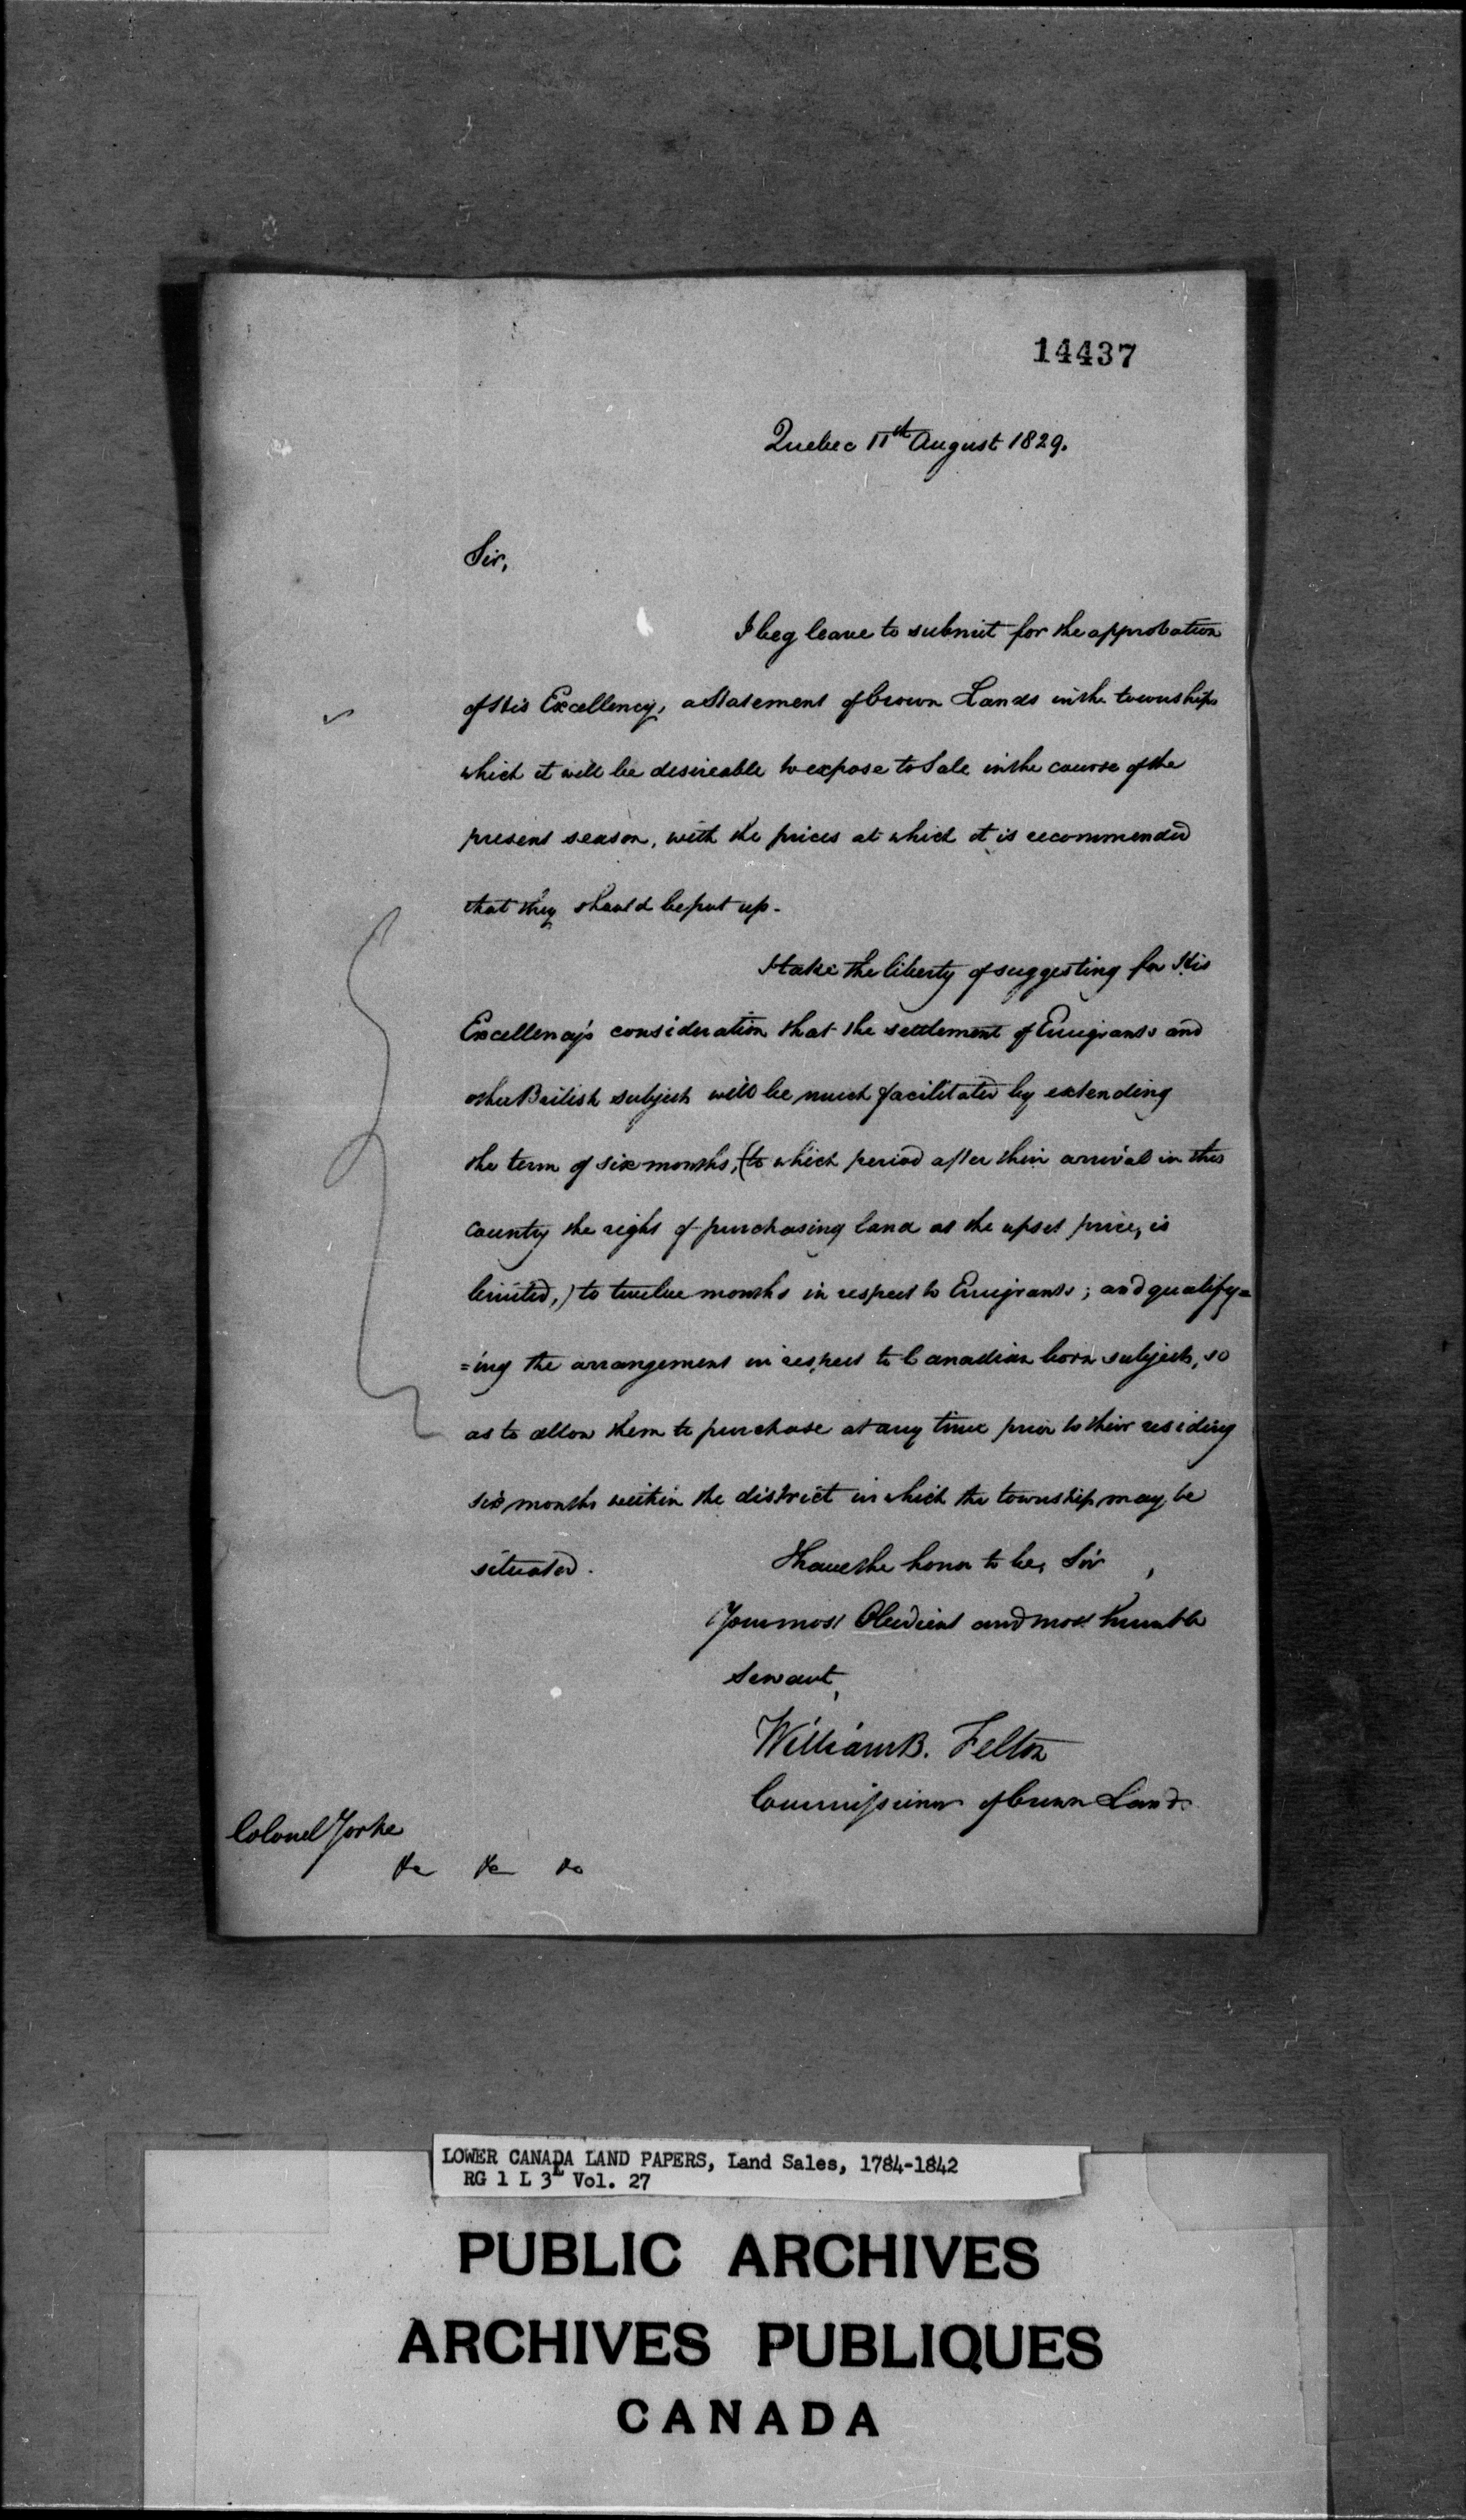 14437
Quebec 11th August 1829.
Sir,
I beg leave to submit for the approbation
of His Excellency, a Statement of Crown Lands in the townships
which it will be desireable to expose to Sale in the course of the
present season, with the prices at which it is recommended
that they should be put up.
I take the liberty of suggesting for His
Excellency's consideration that the settlement of Emigrants and
other British subjects will be much facilitated by extending
the term of six months, (to which period after their arrival in this
country the right of purchasing land at the upset price, is
limited,) to twelve months in respect to Emigrants; and qualify=
=ing the arrangement in respect to Canadian born subjects, so
as to allow them to purchase at any time prior to their residing
six months within the district in which the township may be
situated. I have the honor to be, Sir,
Your most Obedient and most humble
Servant,
William B. Felton
Commissioner of Crown Lands
Colonel Yorke
&c &c &c
LOWER CANADA LAND PAPERS, Land Sales, 1784-1842
RG 1 L 3L Vol. 27
PUBLIC ARCHIVES
ARCHIVES PUBLIQUES
CANADA